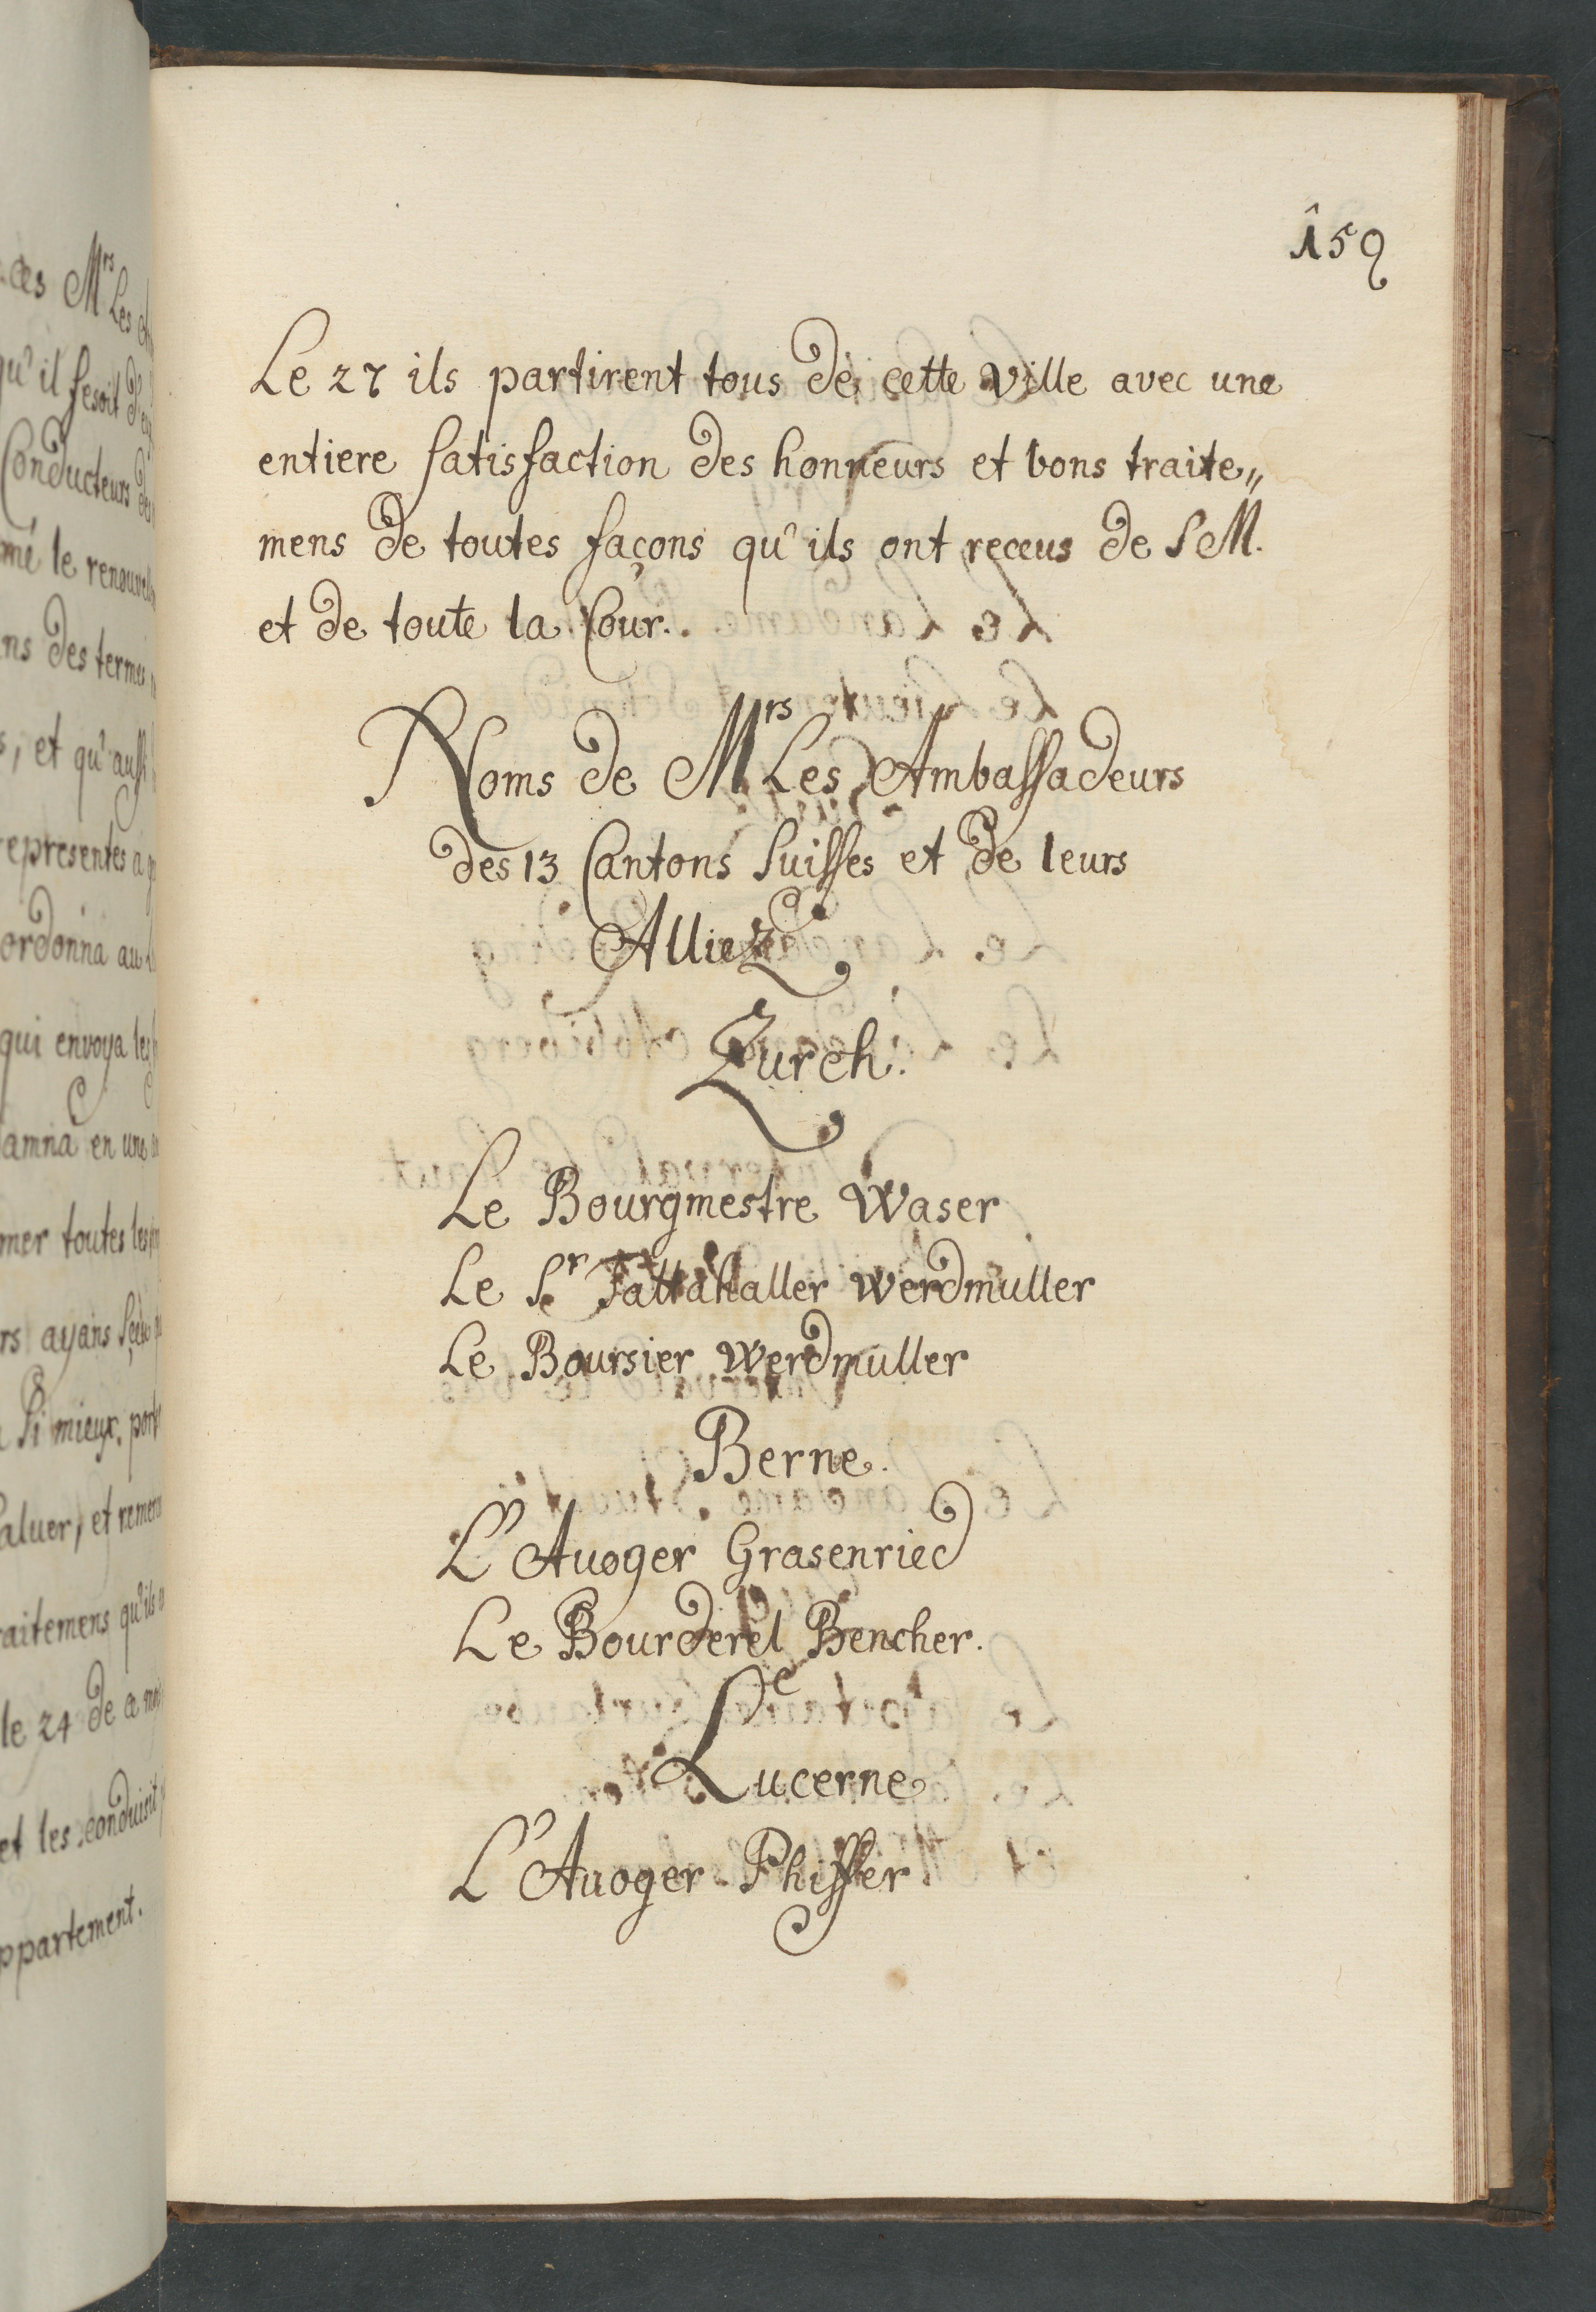 159
Le 27 ils partirent tous de cette ville avec une
entiere satisfaction des honneurs et bons traite„
mens de toutes façons qu'ils ont receus de S M.
et de toute la Cour.
Noms de Mrs Les Ambassadeurs
des 13 Cantons Suisses et de leurs
Alliez
Zurch.
Le Bourgmestre Waser
Le Sr Tattahaller Werdmuller
Le Boursier Werdmuller
Berne.
L'Auoger Grasenried
Le Bourderel Bencher.
Lucerne
L'Auoger Phiffer